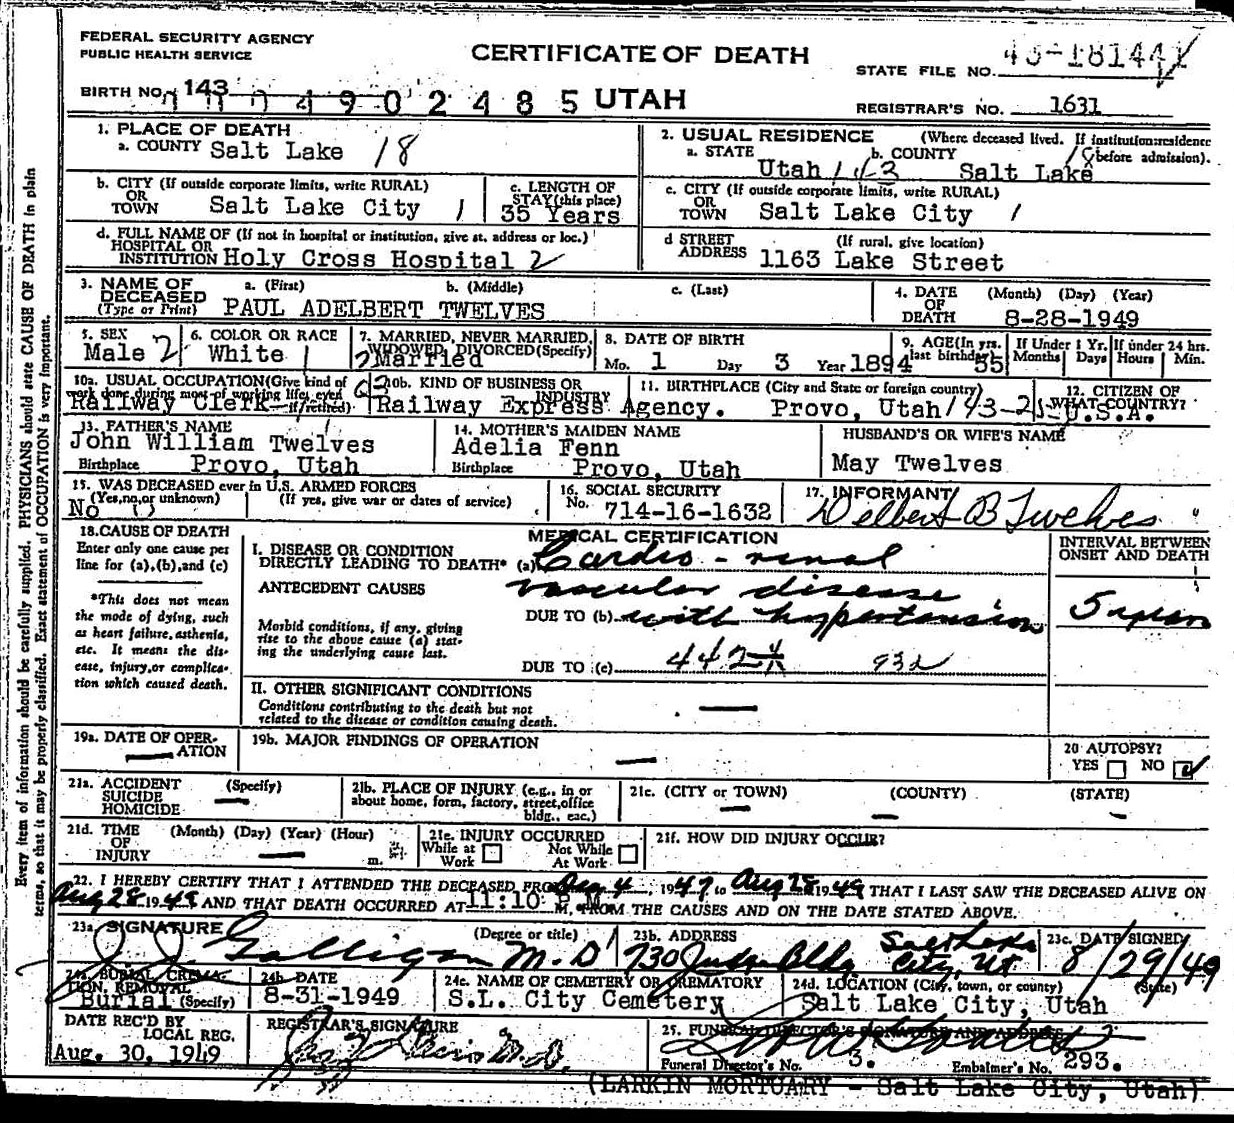 FEDERAL SECURITY AGENCY
PUBLIC HEALTH SERVICE
CERTIFICATE OF DEATH
STATE FILE NO. 49-181441
BIRTH NO. 143
4902485 UTAH
REGISTRAR'S NO. 1631
1. PLACE OF DEATH
a. COUNTY Salt Lake 18
2. USUAL RESIDENCE (Where deceased lived. If institution:residence before admission).
a. STATE Utah 143 b. COUNTY Salt Lake 18
b. CITY (If outside corporate limits, write RURAL)
OR TOWN Salt Lake City 1
c. LENGTH OF STAY(this place) 35 Years
c. CITY (If outside corporate limits, write RURAL)
OR TOWN Salt Lake City 1
d. FULL NAME OF (If not in hospital or institution, give st. address or loc.)
HOSPITAL OR
INSTITUTION Holy Cross Hospital 2
d STREET ADDRESS (If rural, give location)
1163 Lake Street
3. NAME OF DECEASED (Type or Print) a. (First) b. (Middle) c. (Last)
PAUL ADELBERT TWELVES
4. DATE OF DEATH (Month) (Day) (Year)
8-28-1949
5. SEX
Male 2
6. COLOR OR RACE
White 1
7. MARRIED, NEVER MARRIED, WIDOWED, DIVORCED(Specify)
2 Married
8. DATE OF BIRTH
Mo. 1 Day 3 Year 1894
9. AGE(In yrs. last birthday) 55
If Under 1 Yr. Months Days
If under 24 hrs. Hours Min.
10a. USUAL OCCUPATION(Give kind of work done during most of working life, even if retired)
Railway Clerk
10b. KIND OF BUSINESS OR INDUSTRY
Railway Express Agency.
11. BIRTHPLACE (City and State or foreign country)
Provo, Utah 143-25
12. CITIZEN OF WHAT COUNTRY?
U.S.A.
13. FATHER'S NAME
John William Twelves
Birthplace Provo, Utah
14. MOTHER'S MAIDEN NAME
Adelia Fenn
Birthplace Provo, Utah
HUSBAND'S OR WIFE'S NAME
May Twelves
15. WAS DECEASED ever in U.S. ARMED FORCES
(Yes,no,or unknown) (If yes, give war or dates of service)
No 0
16. SOCIAL SECURITY
No. 714-16-1632
17. INFORMANT
Delbert B Twelves
18. CAUSE OF DEATH
Enter only one cause per line for (a),(b),and (c)
*This does not mean the mode of dying, such as heart failure, asthenia, etc. It means the disease, injury, or complication which caused death.
MEDICAL CERTIFICATION
INTERVAL BETWEEN ONSET AND DEATH
I. DISEASE OR CONDITION
DIRECTLY LEADING TO DEATH* (a) Cardio-renal
ANTECEDENT CAUSES vascular disease
DUE TO (b) with hypertension
5 years
Morbid conditions, if any, giving rise to the above cause (a) stating the underlying cause last.
DUE TO (c) 442 932
II. OTHER SIGNIFICANT CONDITIONS
Conditions contributing to the death but not related to the disease or condition causing death.
19a. DATE OF OPERATION
19b. MAJOR FINDINGS OF OPERATION
20 AUTOPSY?
YES NO
21a. ACCIDENT SUICIDE HOMICIDE (Specify)
21b. PLACE OF INJURY (e.g., in or about home, form, factory, street,office bldg., eac.)
21c. (CITY or TOWN) (COUNTY) (STATE)
21d. TIME OF INJURY (Month) (Day) (Year) (Hour) m.
21e. INJURY OCCURRED
While at Work Not While At Work
21f. HOW DID INJURY OCCUR?
22. I HEREBY CERTIFY THAT I ATTENDED THE DECEASED FROM Aug 4, 1947 to Aug 28 1949 THAT I LAST SAW THE DECEASED ALIVE ON
Aug 28 1949 AND THAT DEATH OCCURRED AT 11:10 P.M. M, FROM THE CAUSES AND ON THE DATE STATED ABOVE.
23a. SIGNATURE (Degree or title)
J J Galligan M.D
23b. ADDRESS
730 Judge Bldg Salt Lake City, Ut
23c. DATE SIGNED
8/29/49
24a. BURIAL, CREMATION, REMOVAL (Specify)
Burial
24b. DATE
8-31-1949
24c. NAME OF CEMETERY OR CREMATORY
S.L. City Cemetery
24d. LOCATION (City, town, or county) (State)
Salt Lake City, Utah
DATE REC'D BY LOCAL REG.
Aug. 30, 1949
REGISTRAR'S SIGNATURE
M.D.
25. FUNERAL DIRECTOR'S SIGNATURE AND ADDRESS
Funeral Director's No. 3. Embalmer's No. 293.
(LARKIN MORTUARY - Salt Lake City, Utah)
Every item of information should be carefully supplied. PHYSICIANS should state CAUSE OF DEATH in plain
terms, so that it may be properly classified. Exact statement of OCCUPATION is very important.